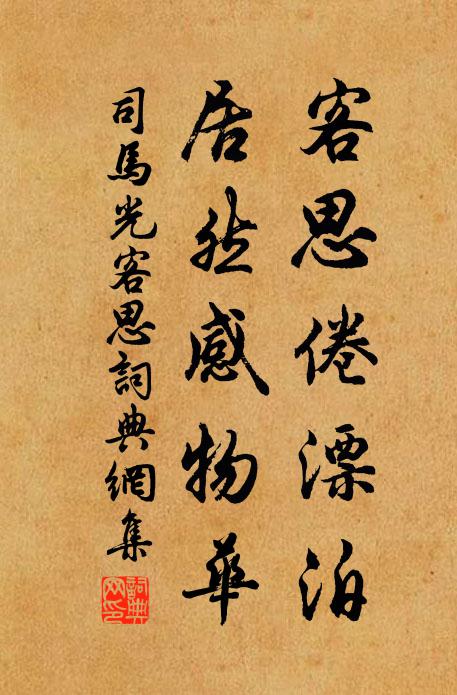 客思倦漂泊
居然感物華
司馬光客思詞典網集
詞典网印